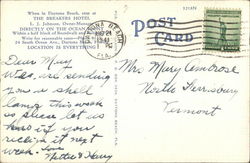 When In Daytona Beach, stay at
THE BREAKERS HOTEL
E. J. Johnson, Owner-Manager
DIRECTLY ON THE OCEAN
Within a half block of Boardwalk and
Write for reasonable rates
24 South Ocean Ave., Daytona
LOCATION IS EVERYTHING!
DAYTONA BEACH
FLA.
POST
CARD
Dear Mary
We are sending
you a shell
lamp this week
so please let us
know if you
receive it next
week. Love
Nettie & Harry
Mrs. Mary Ambrose
North Ferrisburg
Vermont